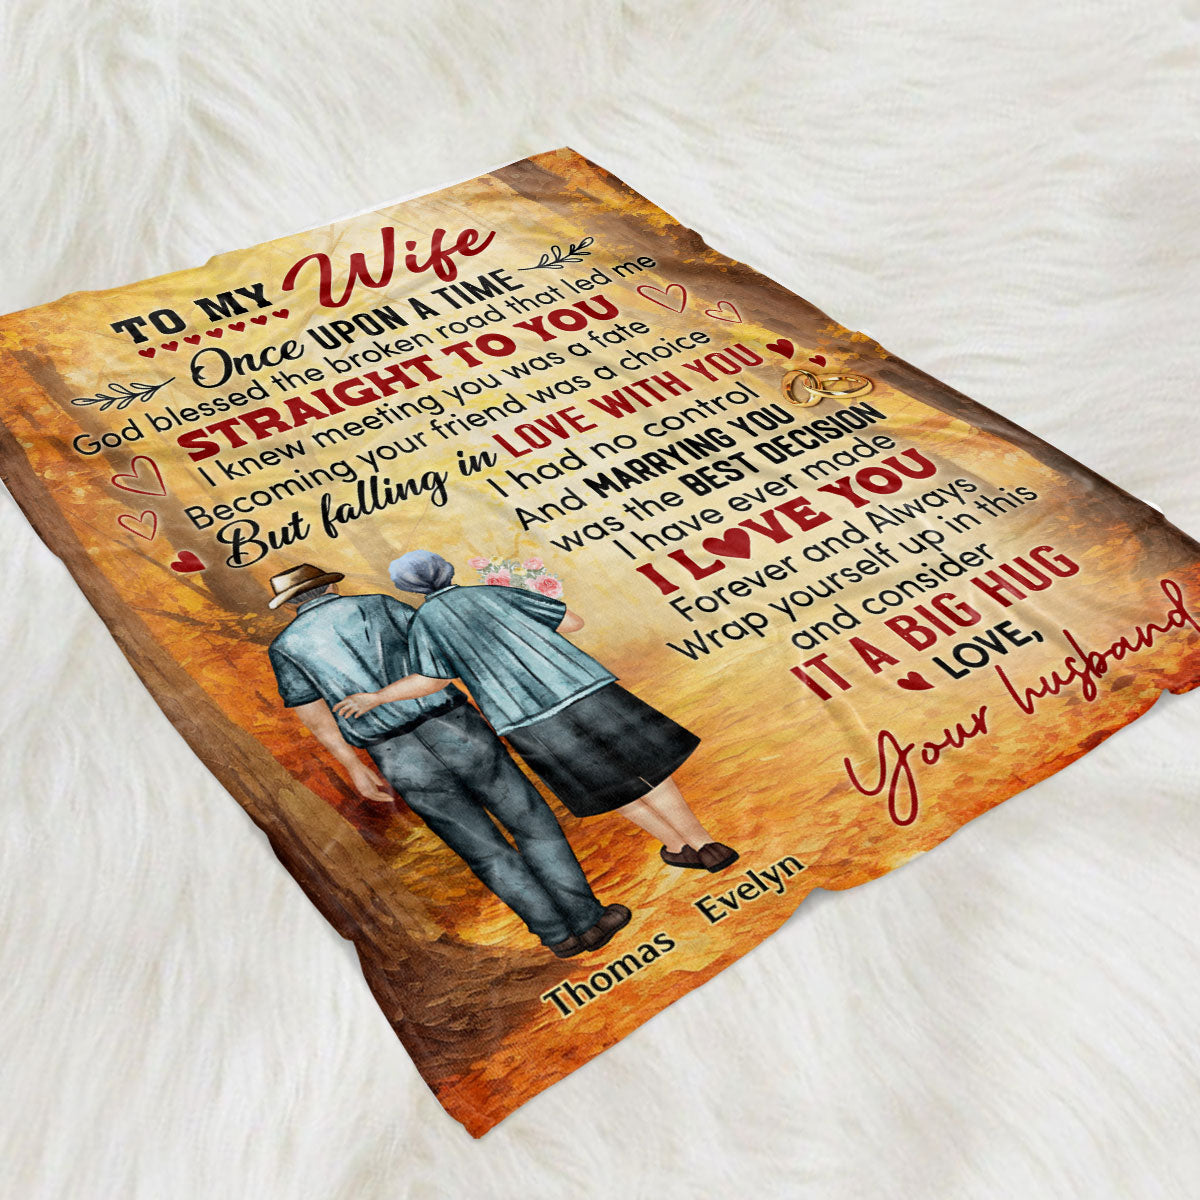 TO MY Wife
Once UPON A TIME
God blessed the broken road that led me
STRAIGHT TO YOU
I knew meeting you was a fate
Becoming your friend was a choice
But falling in LOVE WITH YOU
I had no control
And MARRYING YOU
was the BEST DECISION
I have ever made
I LOVE YOU
Forever and Always
Wrap yourself up in this
and consider
IT A BIG HUG
LOVE,
Your husband
Thomas Evelyn